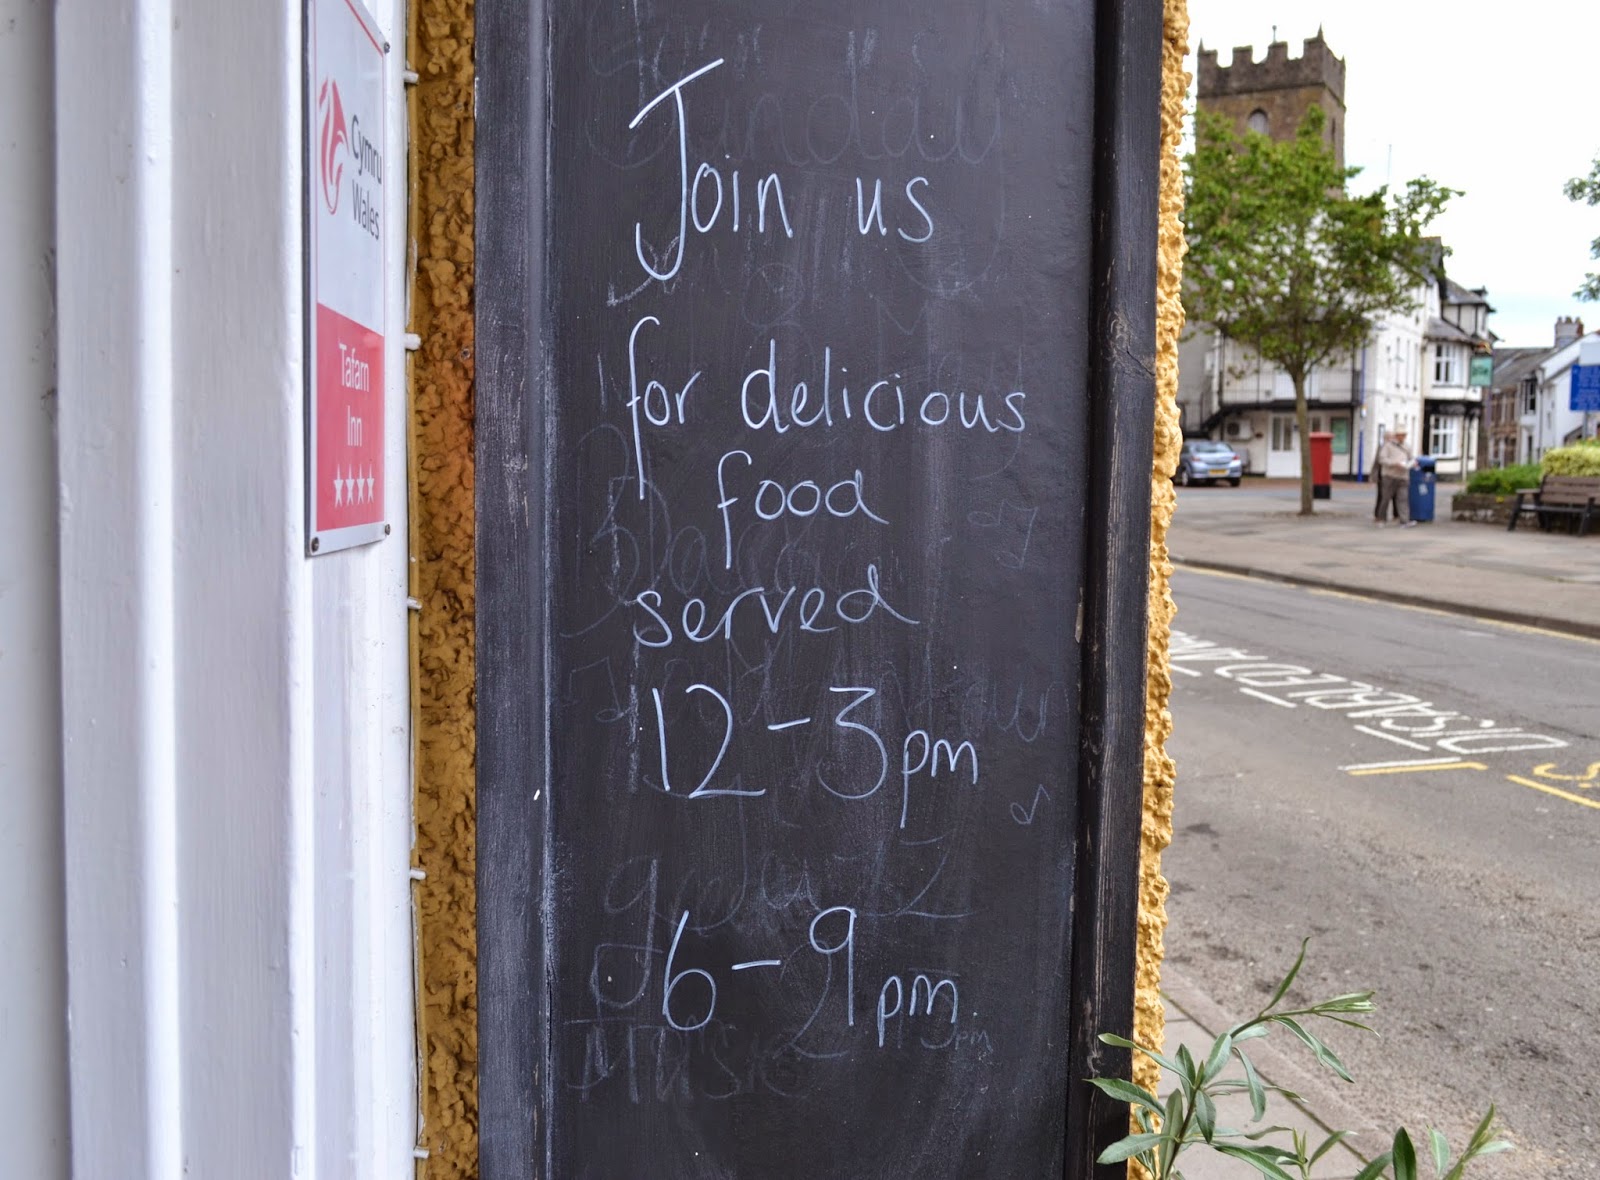 Cymru
Wales
Tafarn
Inn
Join us
for delicious
food
served
12-3pm
6-9pm
Sunday
Music
DISABLED